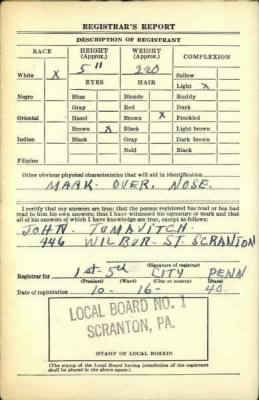 REGISTRAR'S REPORT
DESCRIPTION OF REGISTRANT
RACE HEIGHT (Approx.) WEIGHT (Approx.) COMPLEXION
White X 5 11 220 Sallow
EYES HAIR Light X
Negro Blue Blonde Ruddy
Gray Red Dark
Oriental Hazel Brown X Freckled
Brown X Black Light brown
Indian Black Gray Dark brown
Bald Black
Filipino
Other obvious physical characteristics that will aid in identification
MARK OVER. NOSE.
I certify that my answers are true; that the person registered has read or has had
read to him his own answers; that I have witnessed his signature or mark and that
all of his answers of which I have knowledge are true, except as follows:
JOHN. TOMAVITCH.
446 WILBUR ST. SCRANTON
(Signature of registrar)
Registrar for 1st-5th CITY PENN
(Precinct) (Ward) (City or county) (State)
Date of registration 10-16-40.
LOCAL BOARD NO. 1
SCRANTON, PA.
(STAMP OF LOCAL BOARD)
(The stamp of the Local Board having jurisdiction of the registrant
shall be placed in the above space.)